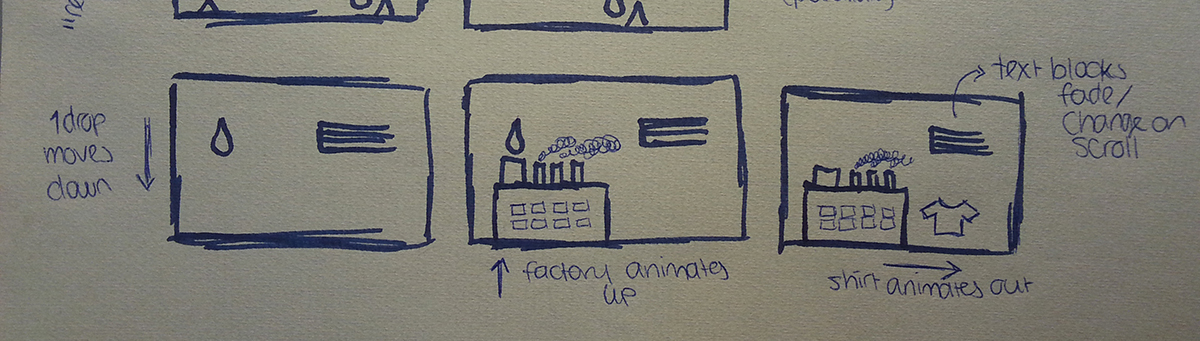 1 drop
moves
down
factory animates
up
text blocks
fade/
change on
scroll
shirt animates out